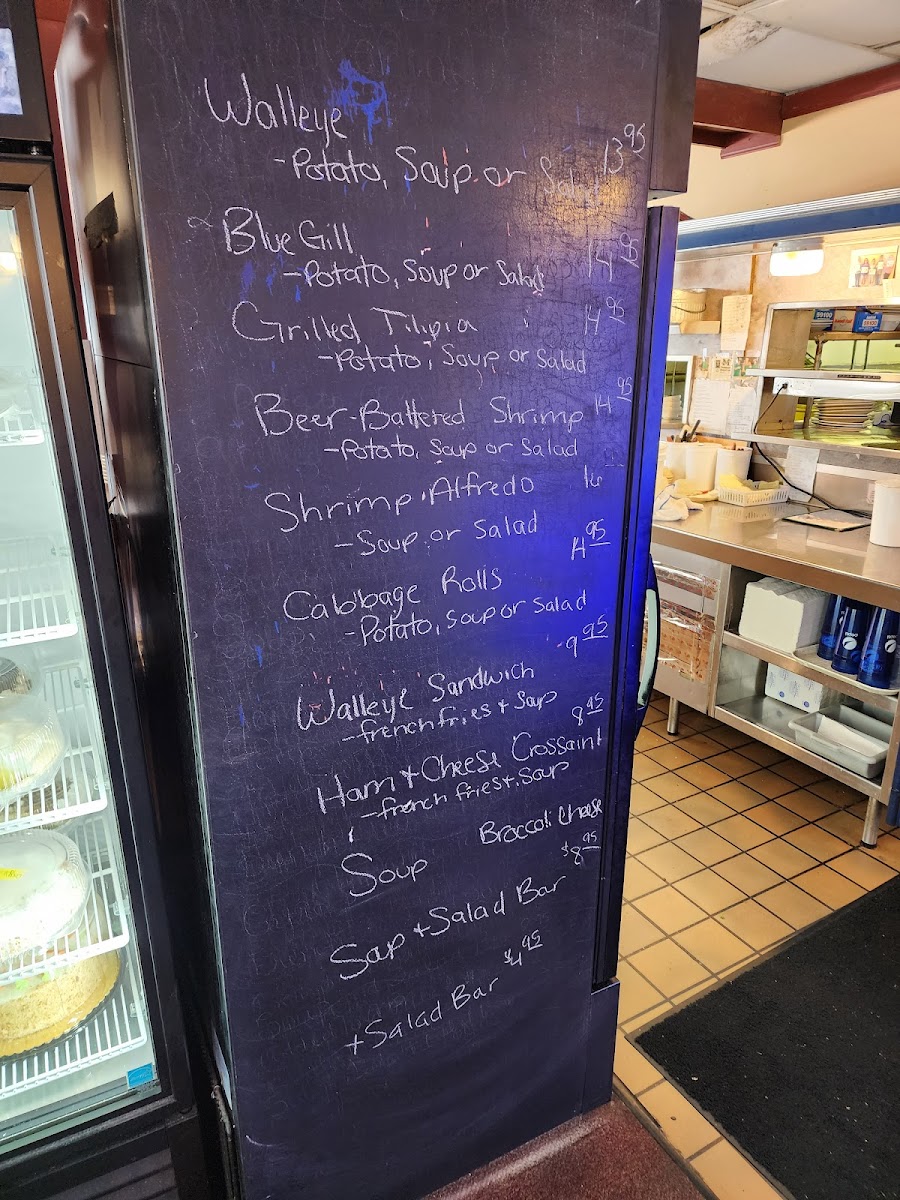 Walleye
-Potato, Soup or Salad 13 95
Blue Gill 14 95
-Potato, Soup or Salad
Grilled Tilipia 14 95
-Potato, Soup or Salad
Beer-Battered Shrimp 14 95
-Potato, Soup or Salad
Shrimp Alfredo
-Soup or Salad
Cabbage Rolls 14 95
-Potato, Soup or Salad
Walleye Sandwich 9 95
-french fries + Soup
Ham + Cheese Crossaint 8 95
-french fries + Soup
Soup Broccoli Cheese
Soup + Salad Bar $8 95
+Salad Bar $4 95